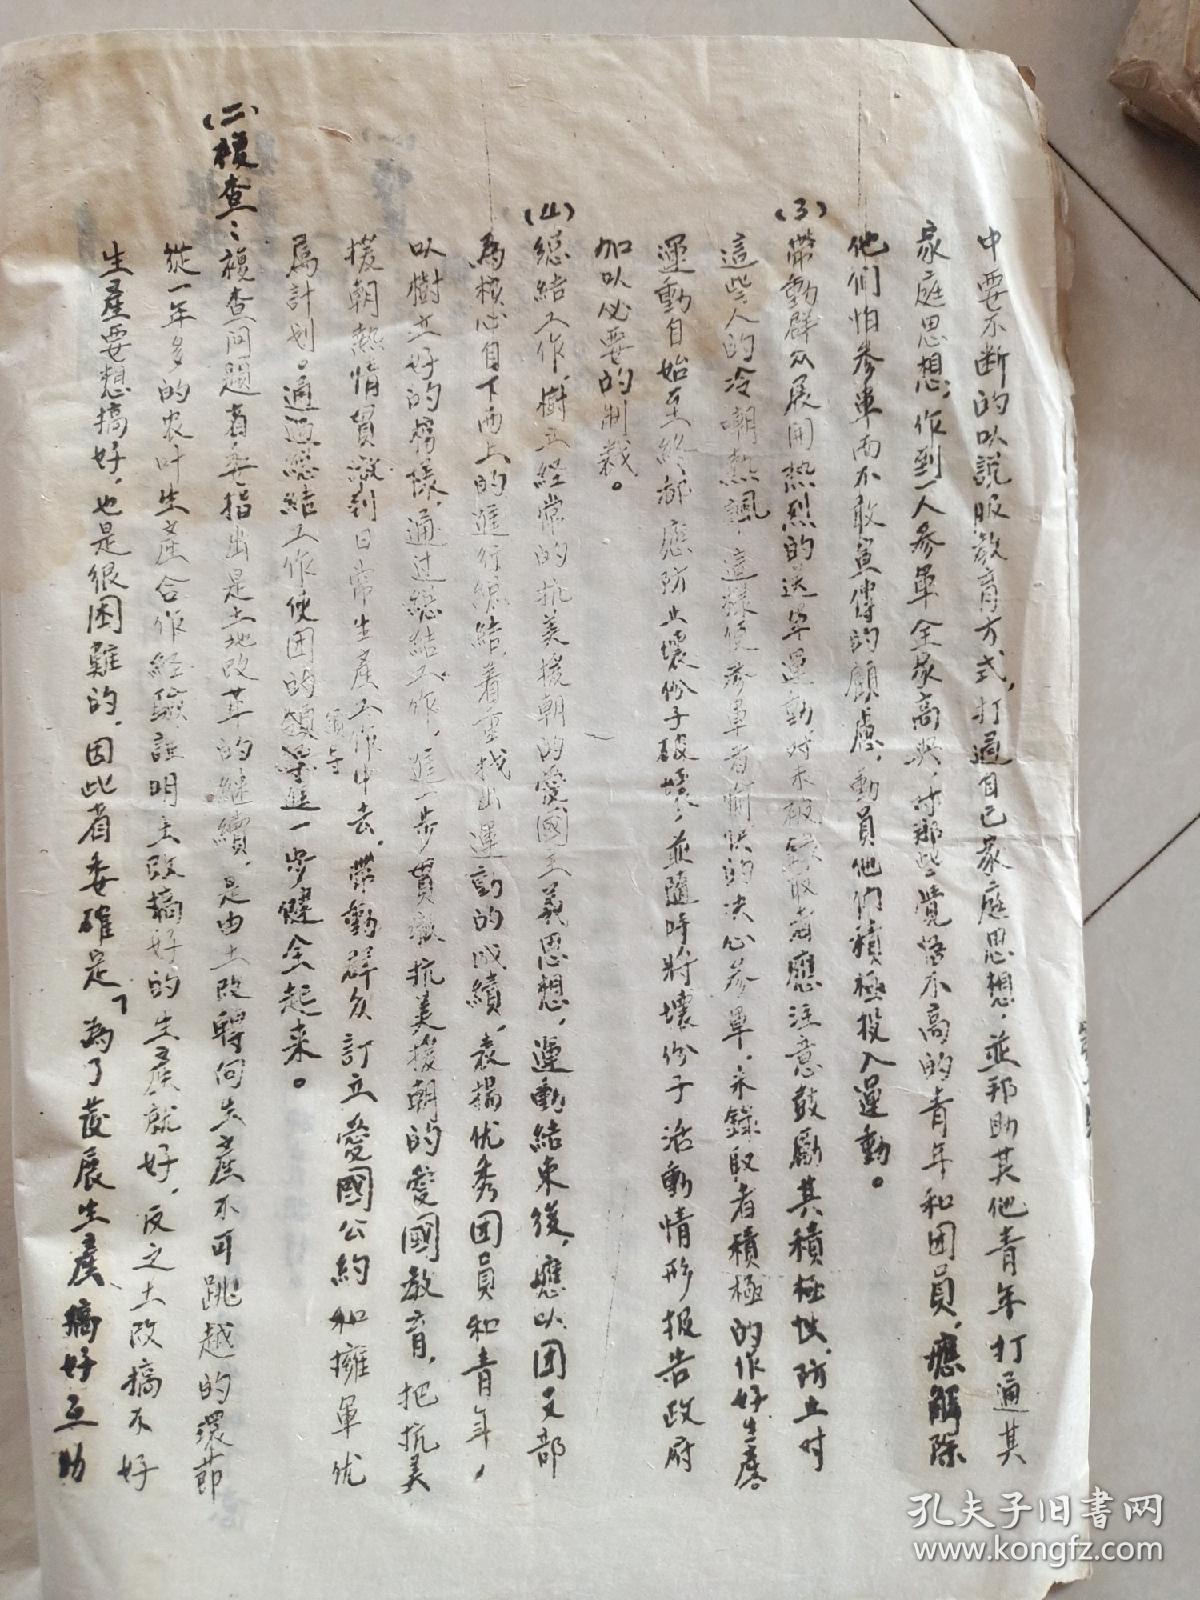 中要不断的以說服教育方式，打通自己家庭思想，並邦助其他青年打通其
家庭思想，作到一人參軍全家高興，对那些覺悟不高的青年和团員，應解除
他们怕參軍而不敢宣傳的顧慮，動員他们積極投入運動。
(3)帶動群众展開热烈的送軍運動，对未被錄取者應注意鼓勵其積極性，防止对
這些人的冷嘲熱諷，這樣使參軍者愉快的决心參軍，未錄取者積極的作好生產。
運動自始至終都應防止壞份子破壞，並隨時將壞份子活動情形报告政府
加以必要的制裁。
(4)總結工作，樹立經常的抗美援朝的愛國主義思想，運動結束後，應以团支部
為核心自下而上的進行總結，着重找出運動的成績，表揚优秀团員和青年，
以樹立好的榜樣，通过總結工作，進一步貫徹抗美援朝的愛國教育，把抗美
援朝熱情貫徹到日常生產工作中去，帶動群众訂立愛國公約和擁軍优
属計划。通过總結工作使团的領導進一步健全起来。
領导
(二)複查：複查问題省委指出是土地改革的继續，是由土改轉向生產不可跳越的環節
從一年多的农叶生產合作經驗証明土改搞好的生產就好，反之土改搞不好
生產要想搞好，也是很困難的，因此省委確是「為了發展生產搞好互助
孔夫子旧书网
www.kongfz.com